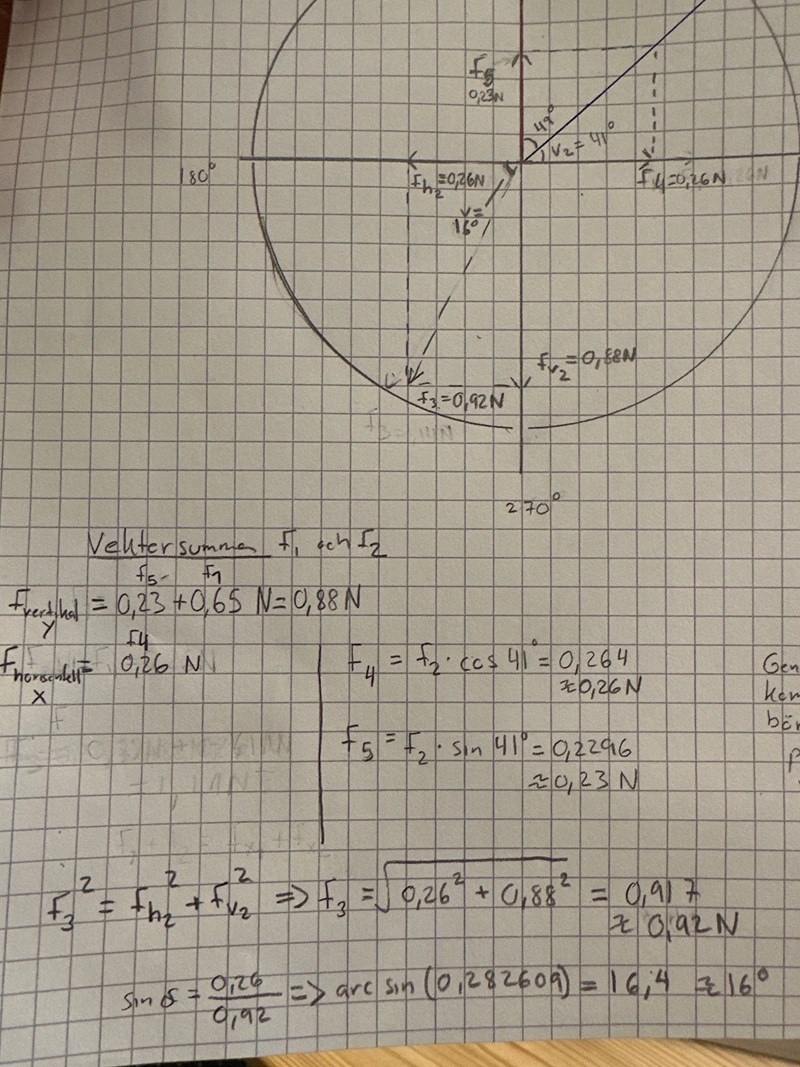 F5
0,23N
49°
v2 = 41°
180°
Fh2 = 0,26N
F4 = 0,26N
v =
16°
Fv2 = 0,88N
F3 = 0,92N
270°
Vektorsumman F1 och F2
F5 F1
Fvertikal = 0,23 + 0,65 N = 0,88 N
y
F4
Fhorisontell = 0,26 N
x
F4 = F2 · cos 41° = 0,264
≈ 0,26 N
F5 = F2 · sin 41° = 0,2296
≈ 0,23 N
F3² = Fh2² + Fv2² => F3 = √0,26² + 0,88² = 0,917
≈ 0,92 N
sin = 0,26/0,92 => arc sin (0,282609) = 16,4 ≈ 16°